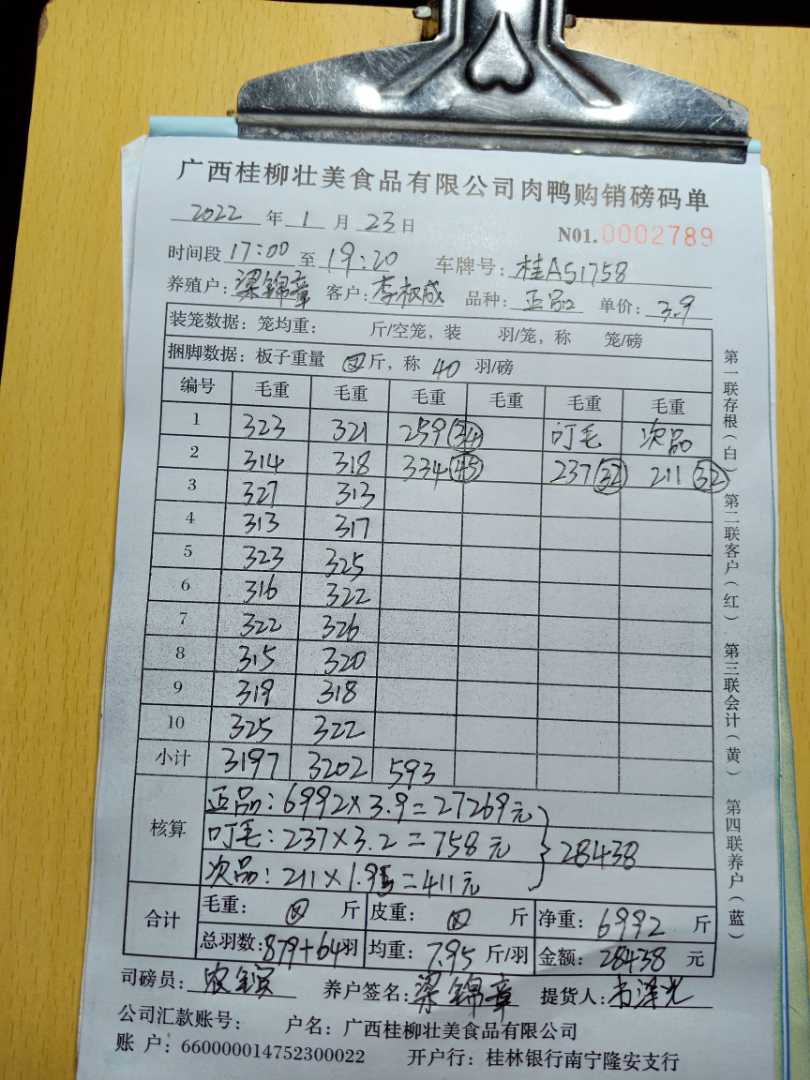 广西桂柳壮美食品有限公司肉鸭购销磅码单
2022 年 1 月 23 日
N01.0002789
时间段 17:00 至 19:20 车牌号: 桂A51758
养殖户: 梁锦章 客户: 李权成 品种: 正品 单价: 3.9
装笼数据: 笼均重: 斤/空笼, 装 羽/笼, 称 笼/磅
捆脚数据: 板子重量 斤, 称 40 羽/磅
编号 毛重 毛重 毛重 毛重 毛重 毛重
1 323 321 259(34) 叮毛 次品
2 314 318 334(45) 237(32) 211(32)
3 327 313
4 313 317
5 323 325
6 316 322
7 322 326
8 315 320
9 319 318
10 325 322
小计 3197 3202 593
核算
正品: 6992×3.9=27269元
叮毛: 237×3.2=758元
次品: 211×1.95=411元
28438
合计
毛重: 斤 皮重: 斤 净重: 6992 斤
总羽数: 879+64羽 均重: 7.95 斤/羽 金额: 28438 元
司磅员: 养户签名: 梁锦章 提货人:
公司汇款账号: 户名: 广西桂柳壮美食品有限公司
账 户: 660000014752300022 开户行: 桂林银行南宁隆安支行
第一联存根(白) 第二联客户(红) 第三联会计(黄) 第四联养户(蓝)